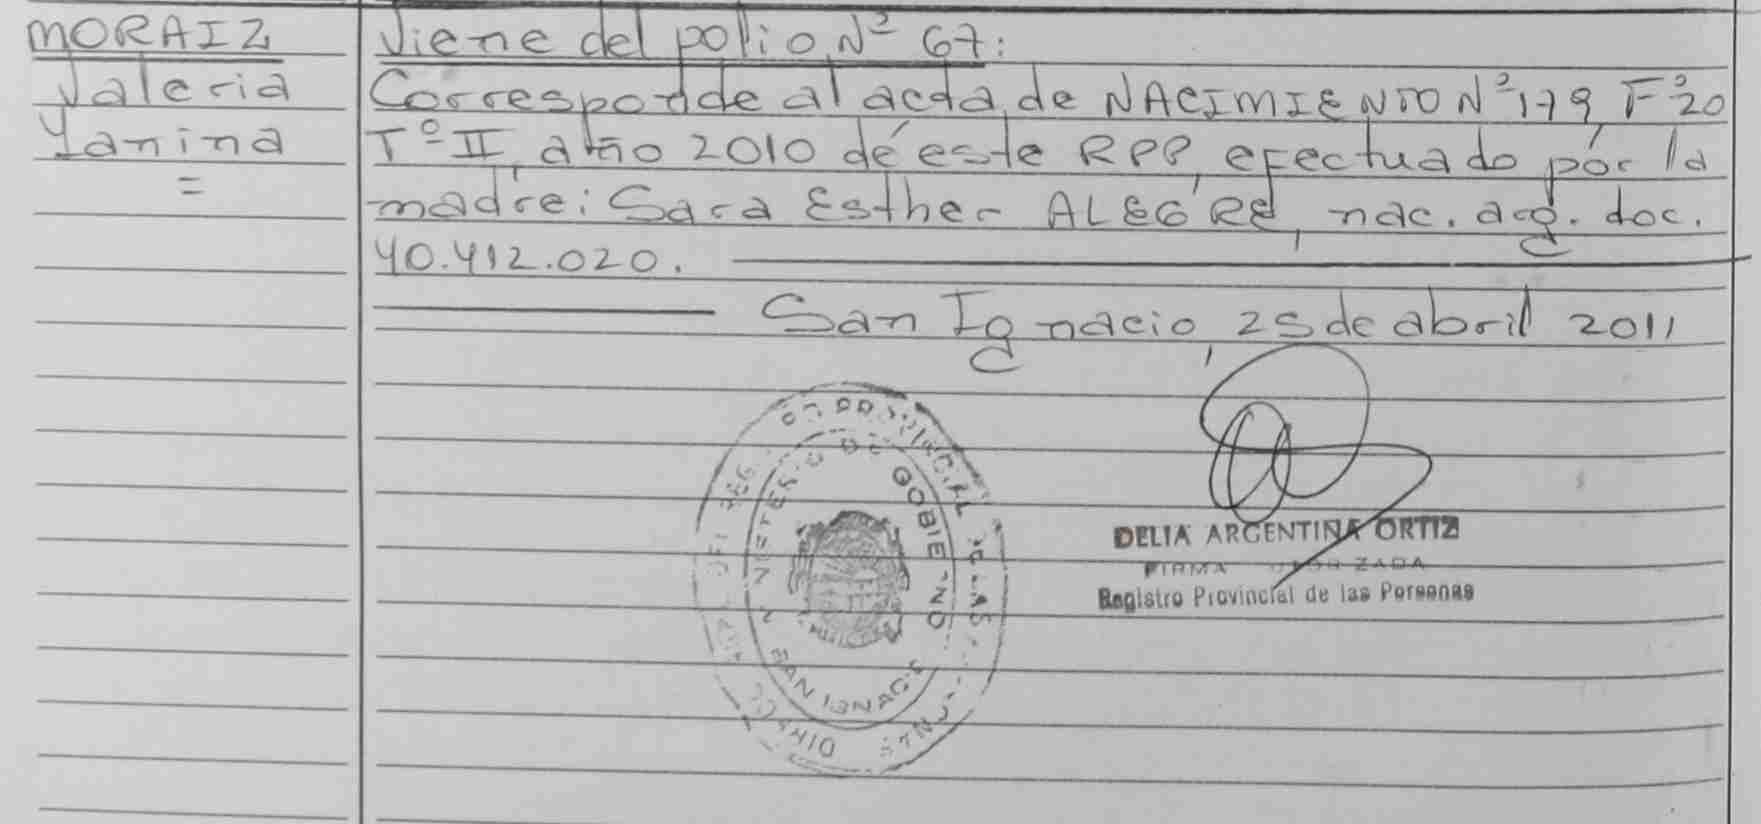 MORAIZ
Valeria
Yanina
=
Viene del folio Nº 67:
Corresponde al acta de NACIMIENTO Nº 179, Fº 20
Tº II, año 2010 de este RPP, efectuado por la
madre: Sara Esther ALEGRE, nac. arg. doc.
40.412.020.
San Ignacio, 25 de abril 2011
MINISTERIO DE GOBIERNO
SAN IGNACIO
DELIA ARGENTINA ORTIZ
FIRMA
Registro Provincial de las Personas